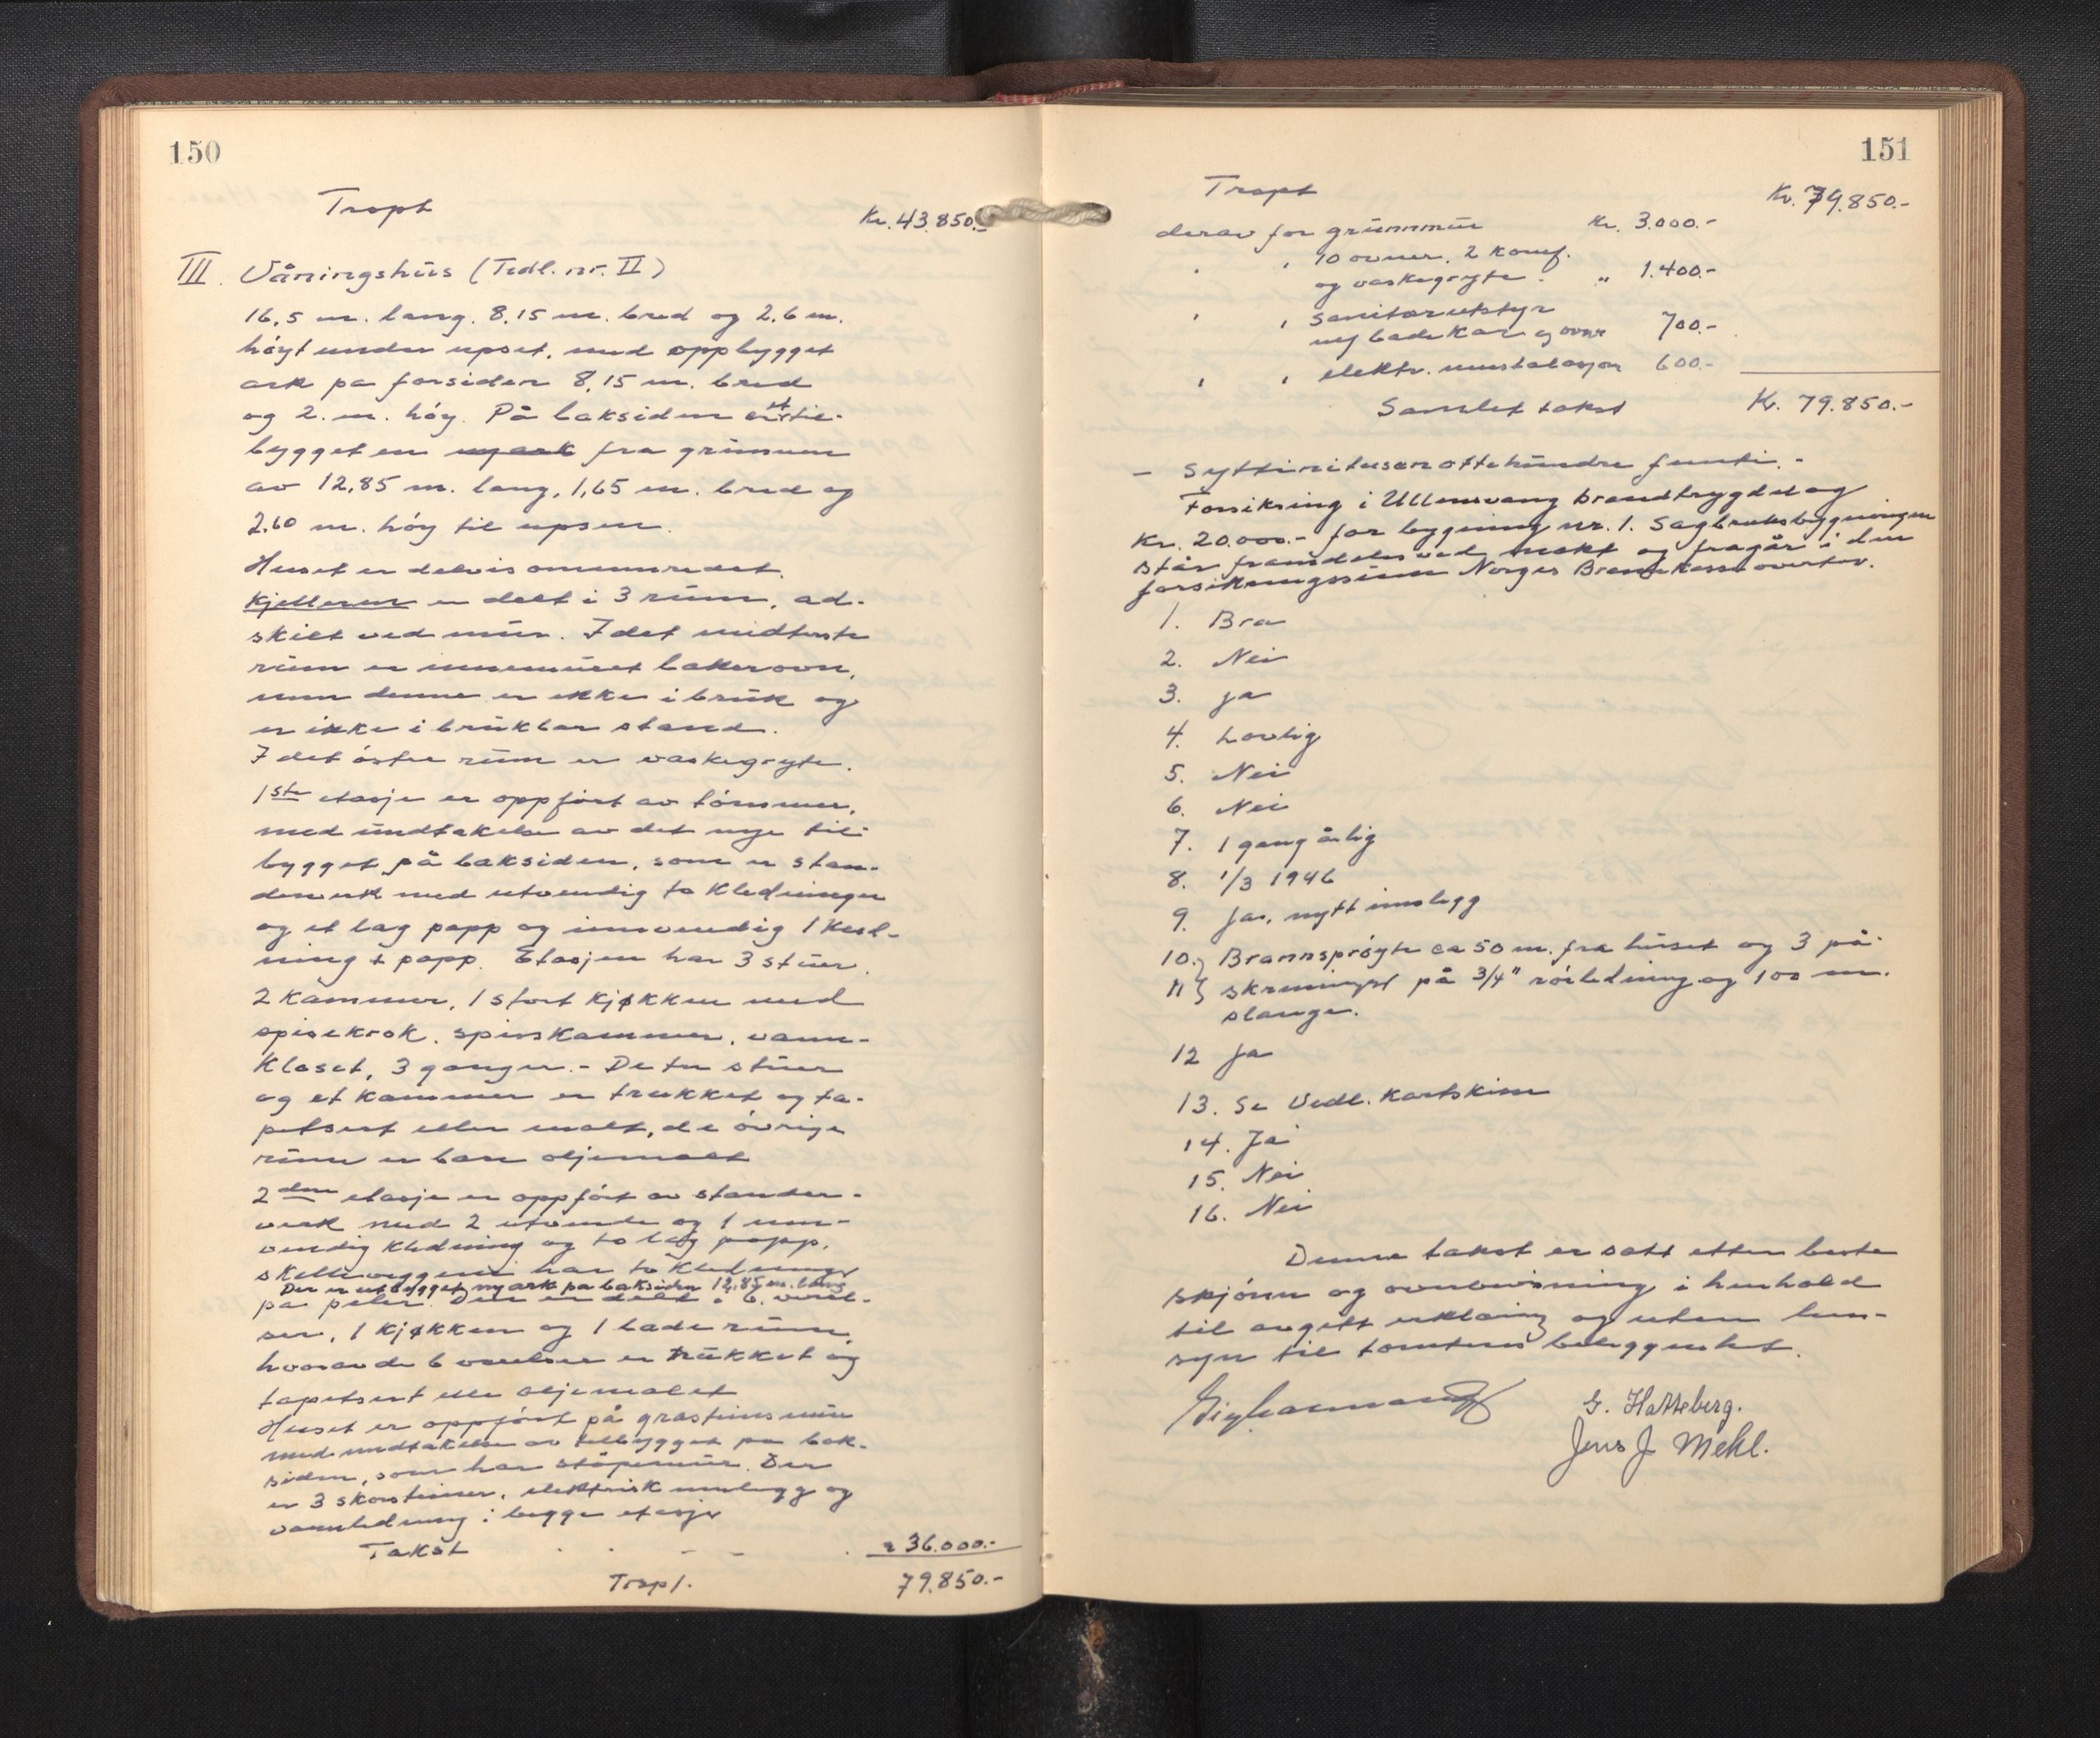 150
Trspt
Kr. 43.850.-
III. Våningshus (Tidl. nr. II)
16,5 m. lang. 8,15 m. bred og 2,6 m.
høyt under upset, med oppbygget
ark på forsiden 8,15 m. bred
og 2. m. høy. På baksiden er et til-
bygget en ny ark fra grunnen
av 12,85 m. lang, 1,65 m. bred og
2.60 m. høy til upsen.
Huset er delvis ominnredet.
Kjelleren er delt i 3 rum, ad-
skilt ved mur. I det midterste
rum er innemuret bakerovn,
men denne er ikke i bruk og
er ikke i brukbar stand.
I det østre rum er vaskegryte.
1ste etasje er oppført av tømmer,
med undtakelse av det nye til-
bygget på baksiden, som er stan-
derverk med utvendig to kledninger
og et lag papp og innvendig 1 kled-
ning + papp. Etasjen har 3 stuer.
2 kammer, 1 stort kjøkken med
spisekrok, spiskammer, vann-
kloset, 3 ganger. - De tre stuer
og et kammer er trukket og ta-
petsert eller malt, de øvrige
rum er bare oljemalt
2den etasje er oppført av stander-
verk med 2 utvendig og 1 inn-
vendig kledning og to lag papp.
skilleveggene har to kledninger
Der er utbygget ny ark på baksiden 12.85 m. lang
på peler. Den er delt i 6 værel-
ser, 1 kjøkken og 1 baderum,
hvorav de 6 værelser er trukket og
tapetsert eller oljemalet
Huset er oppført på gråstensmur
med undtakelse av tilbygget på bak-
siden, som har støpemur. Der
er 3 skorsteiner, elektrisk innlegg og
vannledning i begge etasjer
Takst . . - - . " 36.000.-
Trspt. 79.850.-
151
Trspt
Kr. 79.850.-
derav for grunnmur Kr. 3.000.-
" " 10 ovner, 2 komf.
og vaskegryte. " 1.400.-
" " sanitærutstyr
m/ badekar og ovner 700.-
" " elektr. innstalasjon 600.-
Samlet takst Kr. 79.850.-
- Syttinitusenottehundre femti. -
Forsikring i Ullensvang Brandtrygdelag
Kr. 20.000.- for bygning nr. 1. Sagbruksbygningen
står fremdeles ved makt og fragår i den
forsikringssum Norges Brannkasse overtar.
1. Bra
2. Nei
3. ja
4. Lovlig
5. Nei
6. Nei
7. 1 gang årlig
8. 1/3 1946
9. Ja, nytt innlegg
10. } Brannsprøyte ca 50 m. fra huset og 3 på-
11 } skruningst på 3/4" rørledning og 100 m.
slange.
12 Ja
13. Se Vedl. Kartskisse
14. Ja
15. Nei
16. Nei
Denne takst er satt etter beste
skjønn og overbevisning i henhold
til avgitt erklæring og uten hen-
syn til tomtens beliggenhet.
G. Hatteberg.
Jens J Mehl.